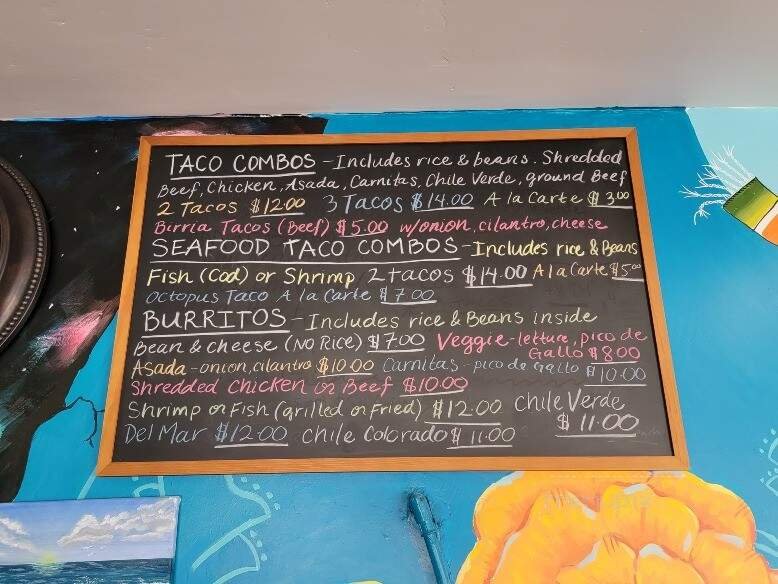 TACO COMBOS - Includes rice & beans. Shredded
Beef, Chicken, Asada, Carnitas, Chile Verde, ground Beef
2 Tacos $12.00 3 Tacos $14.00 A la Carte $3.00
Birria Tacos (Beef) $5.00 w/onion, cilantro, cheese
SEAFOOD TACO COMBOS - Includes rice & Beans
Fish (Cod) or Shrimp 2 tacos $14.00 A la Carte $5.00
Octopus Taco A la Carte $7.00
BURRITOS - Includes rice & Beans inside
Bean & cheese (No Rice) $7.00 Veggie - lettuce, pico de
Gallo $8.00
Asada - onion, cilantro $10.00 Carnitas - pico de gallo $10.00
Shredded Chicken or Beef $10.00
Shrimp or Fish (grilled or Fried) $12.00 Chile Verde
$11.00
Del Mar $12.00 Chile Colorado $11.00